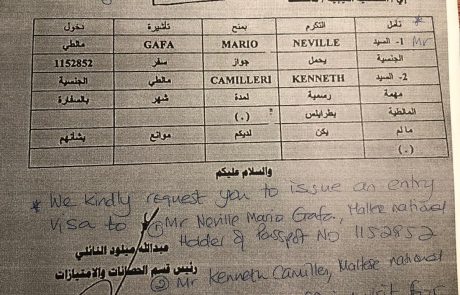 * نأمل التكرم بمنح تأشيرة دخول
Mr 1- السيد NEVILLE MARIO GAFA مالطي
الجنسية يحمل جواز سفر 1152852
2- السيد KENNETH CAMILLERI مالطي الجنسية
مهمة رسمية لمدة شهر بالسفارة
المالطية بطرابلس (.)
مالم يكن لديكم موانع بشأنهم
(.)
والسلام عليكم
* We kindly request you to issue an entry
visa to ① Mr Neville Mario Gafa, Maltese national
Holder of Passport No 1152852
عبدالله ميلود النائلي
رئيس قسم الحصانات والامتيازات
② Mr Kenneth Camilleri, Maltese national
for